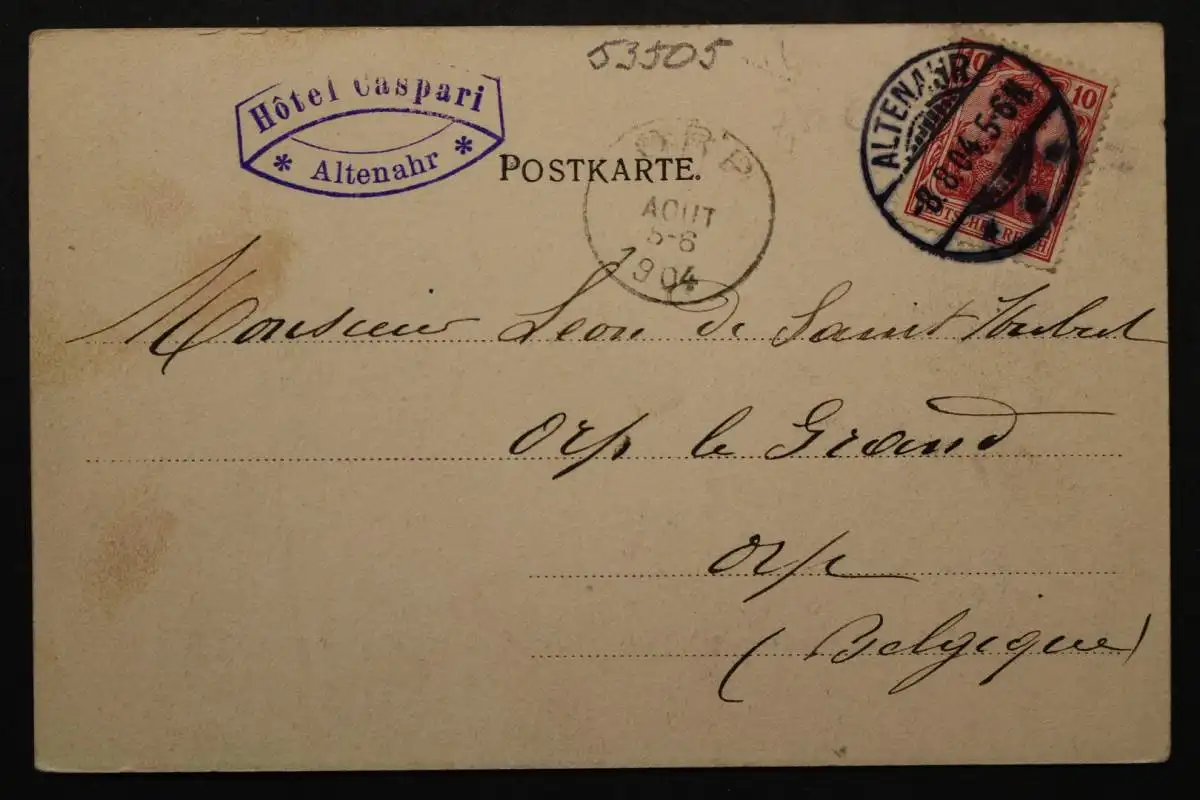 53505
Hôtel Caspari
* Altenahr *
POSTKARTE.
ORP
AOUT
5-6
1904
ALTENAHR
8.04. 5-6N.
10 10
DEUTSCHES REICH
Monsieur Leon de Saint Hubert
Orp le Grand
Orp
(Belgique)